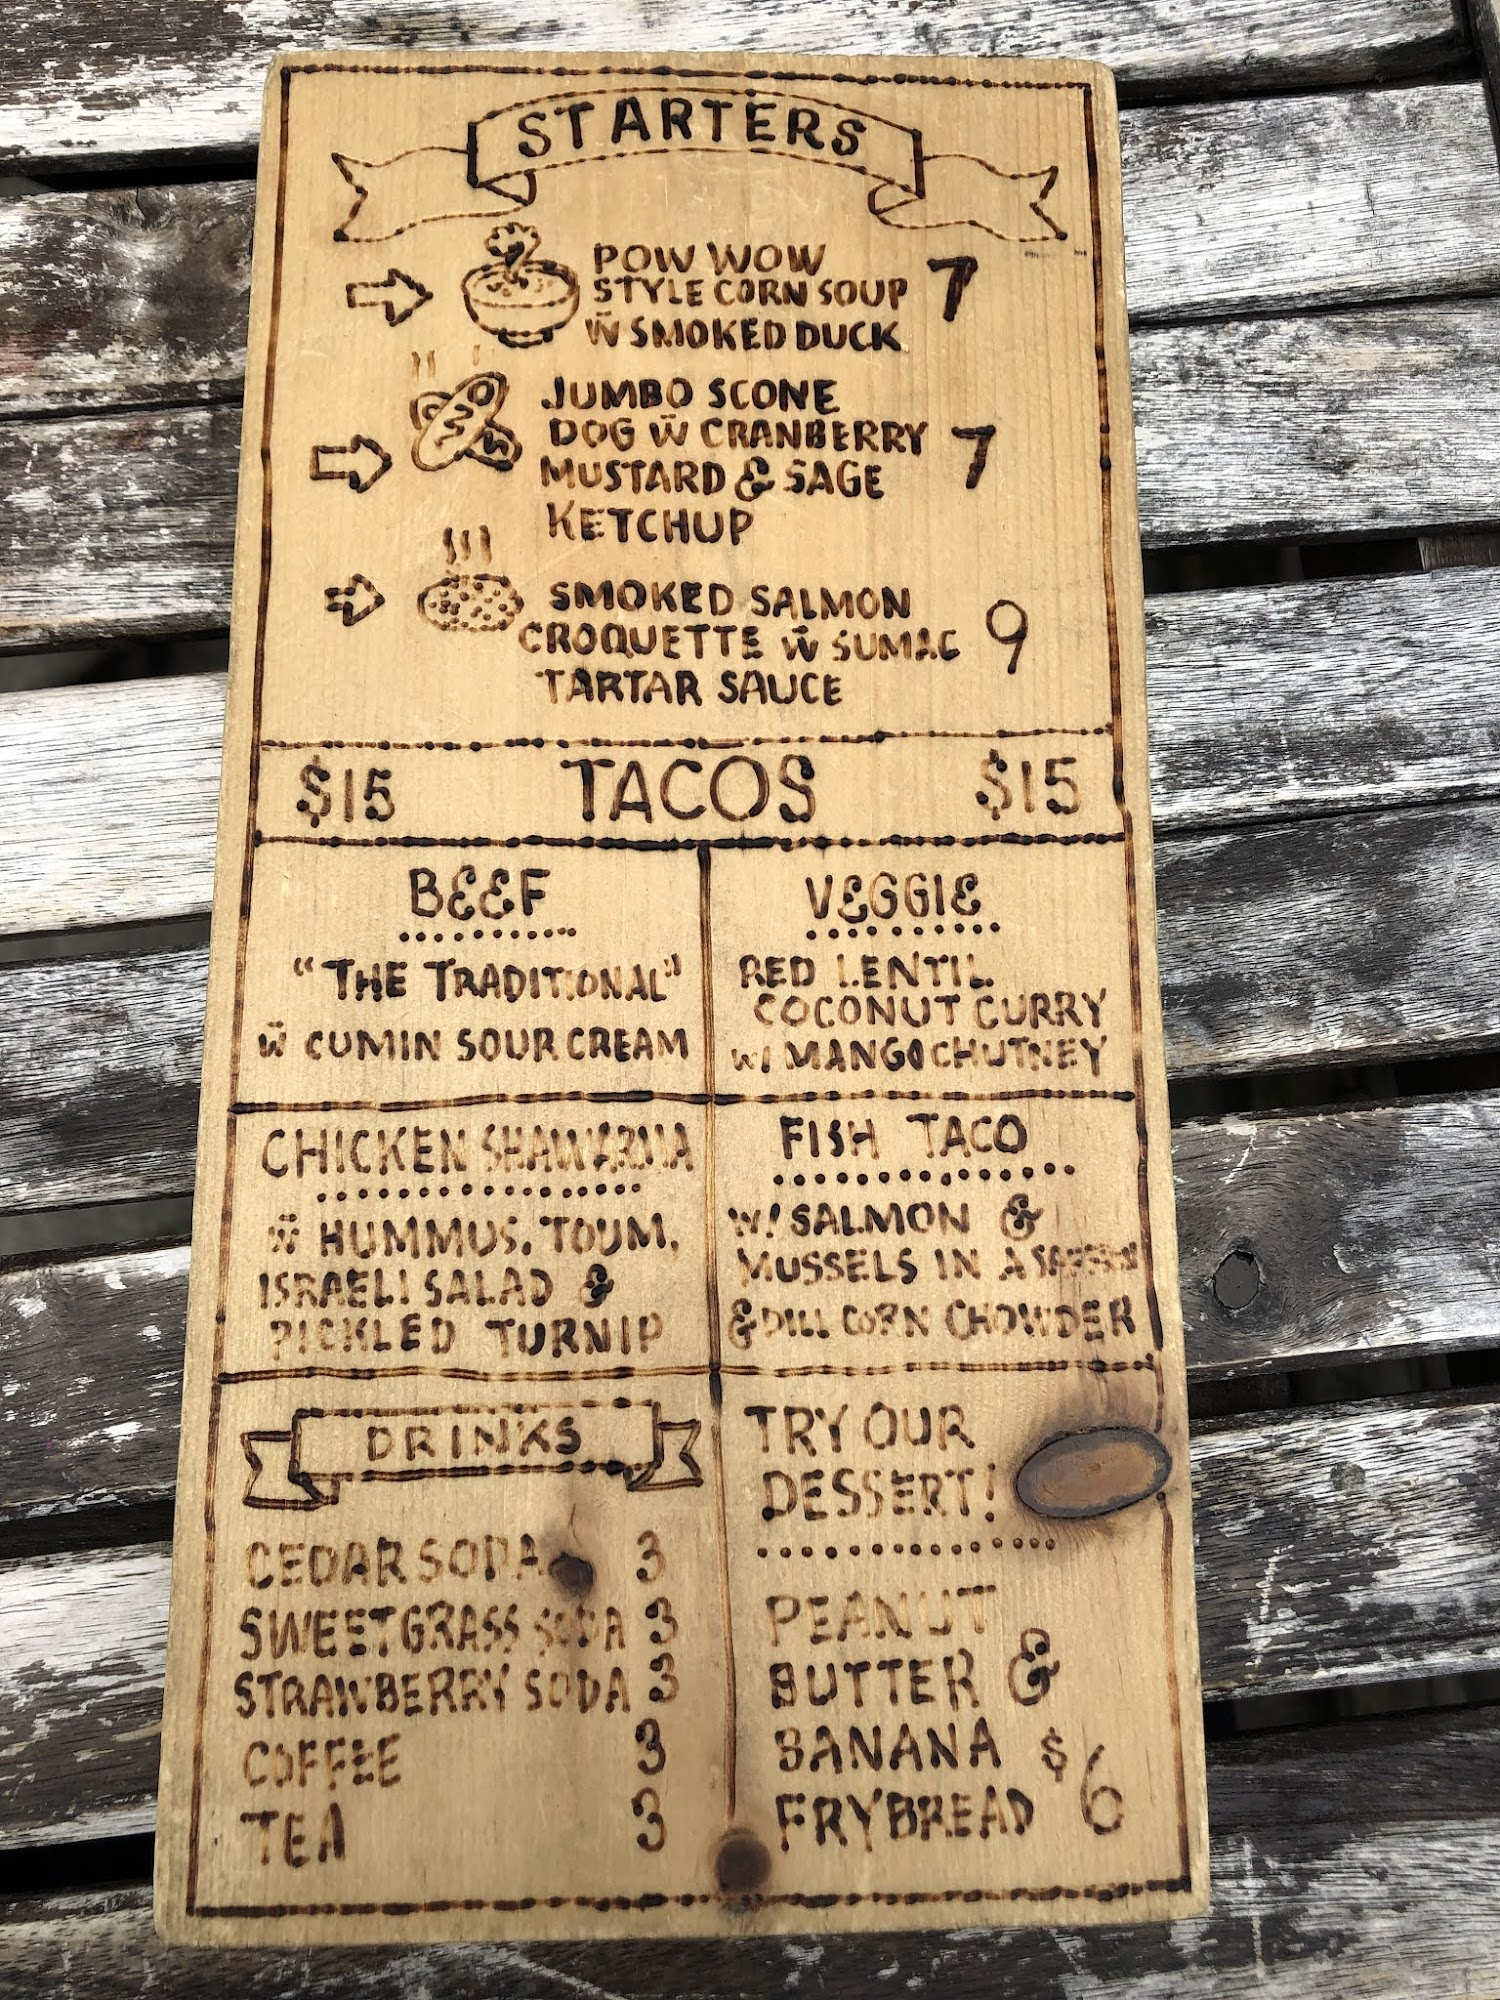 STARTERS
POW WOW
STYLE CORN SOUP 7
W̄ SMOKED DUCK
JUMBO SCONE
DOG W̄ CRANBERRY 7
MUSTARD & SAGE
KETCHUP
SMOKED SALMON
CROQUETTE W̄ SUMAC 9
TARTAR SAUCE
$15 TACOS $15
BEEF
"THE TRADITIONAL"
W̄ CUMIN SOUR CREAM
VEGGIE
RED LENTIL
COCONUT CURRY
W/ MANGO CHUTNEY
CHICKEN SHAWARMA
W̄ HUMMUS, TOUM,
ISRAELI SALAD &
PICKLED TURNIP
FISH TACO
W/ SALMON &
MUSSELS IN A
& DILL CORN CHOWDER
DRINKS
CEDAR SODA 3
SWEETGRASS SODA 3
STRAWBERRY SODA 3
COFFEE 3
TEA 3
TRY OUR
DESSERT!
PEANUT
BUTTER &
BANANA
FRYBREAD $6